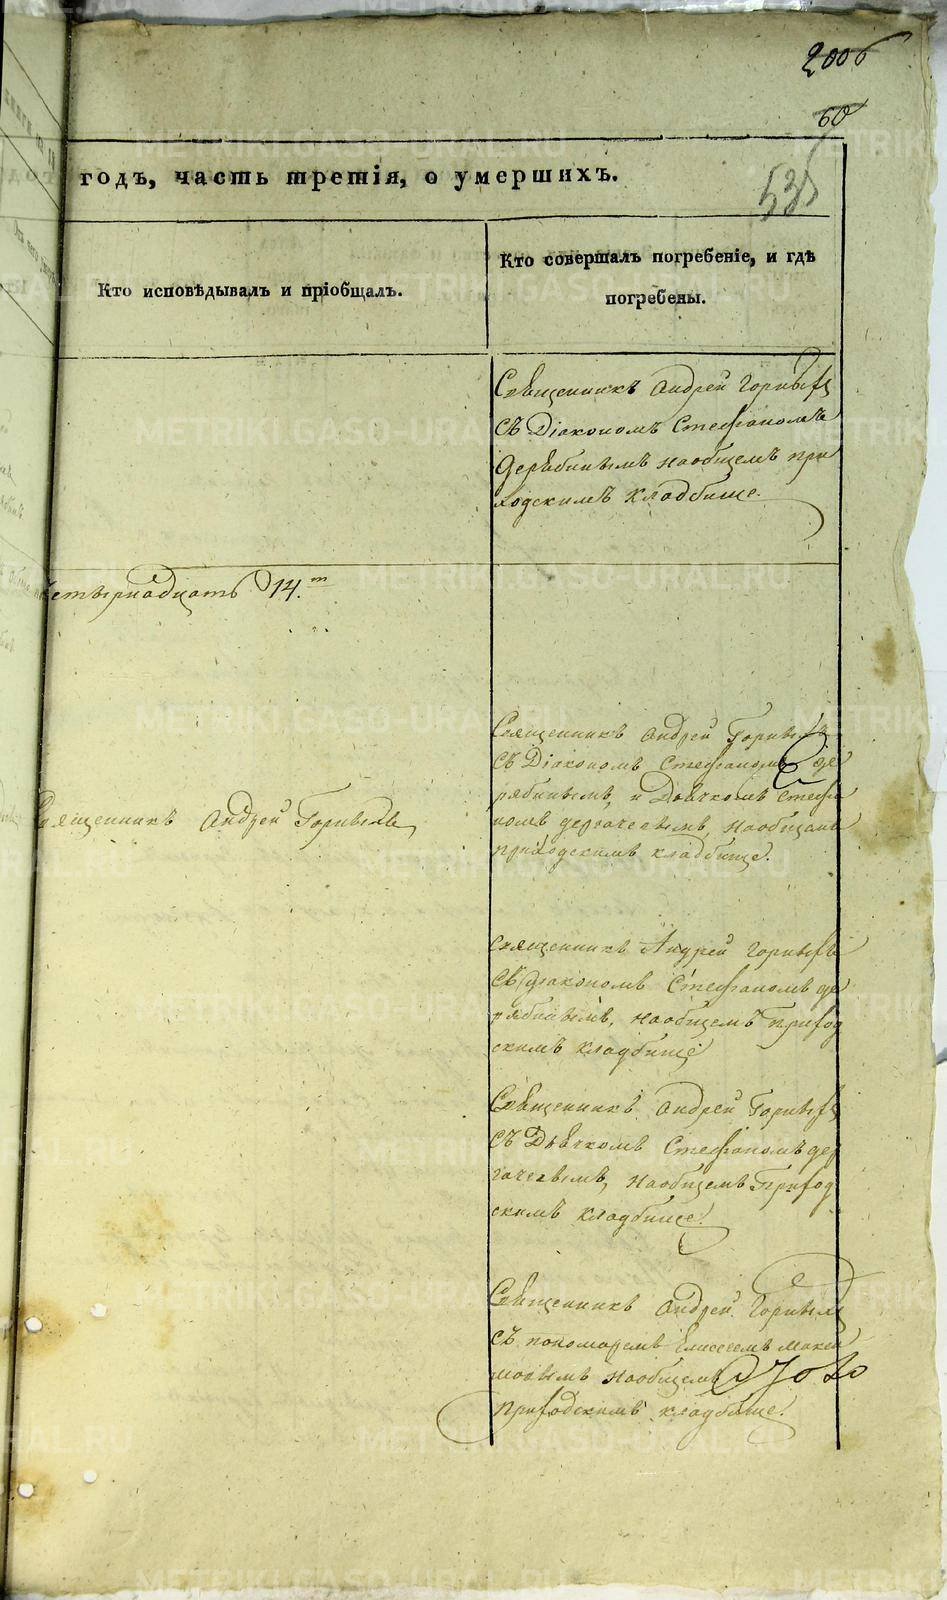 годъ, часть третія, о умершихъ.
Кто исповѣдывалъ и пріобщалъ.
Кто совершалъ погребеніе, и гдѣ
погребены.
Священникъ Андрей Горныхъ
съ Діакономъ Стефаномъ
Дерябинымъ наобщемъ при
ходскимъ кладбище.
Четырнадцать 14.
Священникъ Андрей Горныхъ
Священникъ Андрей Горныхъ
съ Діакономъ Стефаномъ де
рябинымъ, и Дьячкомъ Стефа
номъ дергачевымъ, наобщемъ
приходскимъ кладбище.
Священникъ Андрей Горныхъ
съ діакономъ Стефаномъ де
рябинымъ, наобщемъ приход
скимъ кладбище
Священникъ Андрей Горныхъ
съ Дьячкомъ Стефаномъ дер
гачевымъ, наобщемъ Приход
скимъ кладбище.
Священникъ Андрей Горныхъ
съ пономаремъ Елисеемъ макси
мовымъ наобщемъ
приходскимъ кладбище.
METRIKI.GASO-URAL.RU